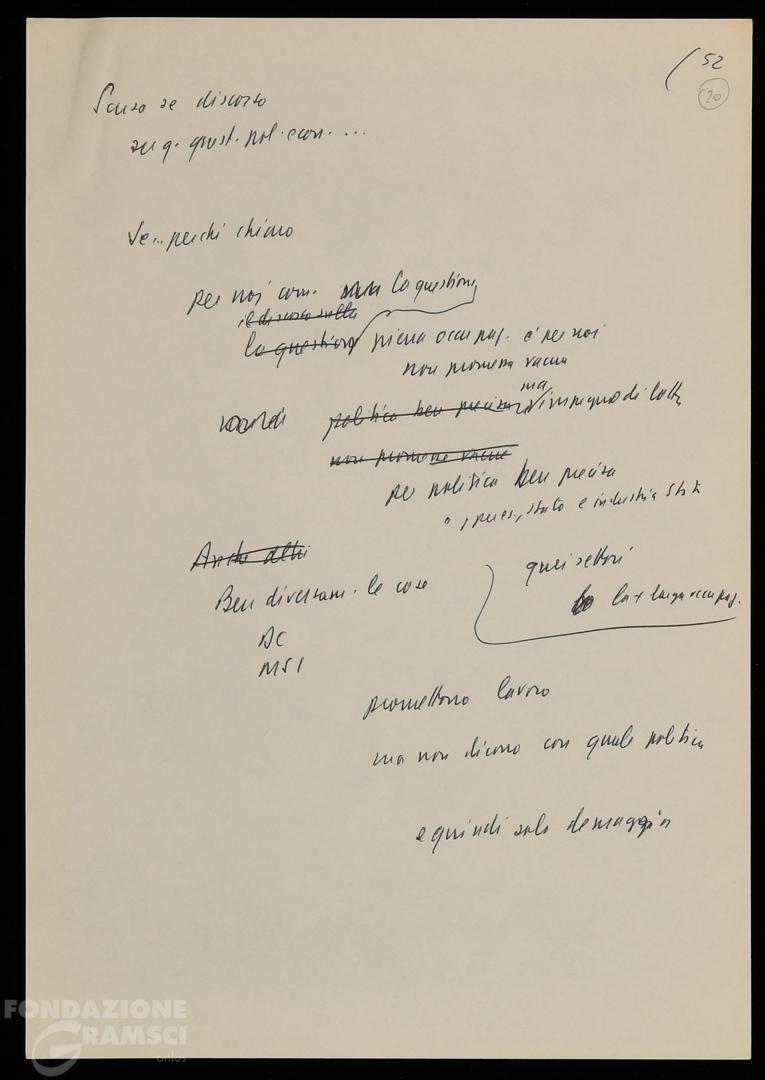 52
20
Scuso se discorso
su q. quest. pol. econ. ...
Ve.. perchi chiaro
per noi com. la questione
il discorso sulla
la question piena occupaz. è per noi
non promessa vacua
ma
politica ben precisa impegno di lotta
non promessa vacue
per politica ben precisa
stato e industria Stat
Anche altri
quei settori
Ben diversam. le cose
la + larga occupaz.
DC
MSI
promettono lavoro
ma non dicono con quale politica
e quindi solo demagogia
FONDAZIONE
GRAMSCI
onlus